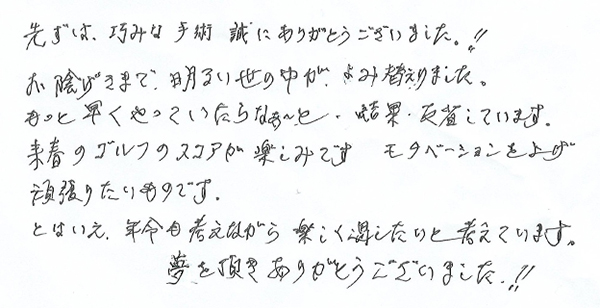 先ずは、巧みな手術 誠にありがとうございました。!!
お陰げさまで、明るい世の中が、よみ替えりました。
もっと早くやっていたらなぁ〜と・結果・反省しています。
来春のゴルフのスコアが楽しみです モチベーションを上げ
頑張りたいものです。
とはいえ、年令も考えながら楽しく過したいと考えています。
夢を頂きありがとうございました.!!